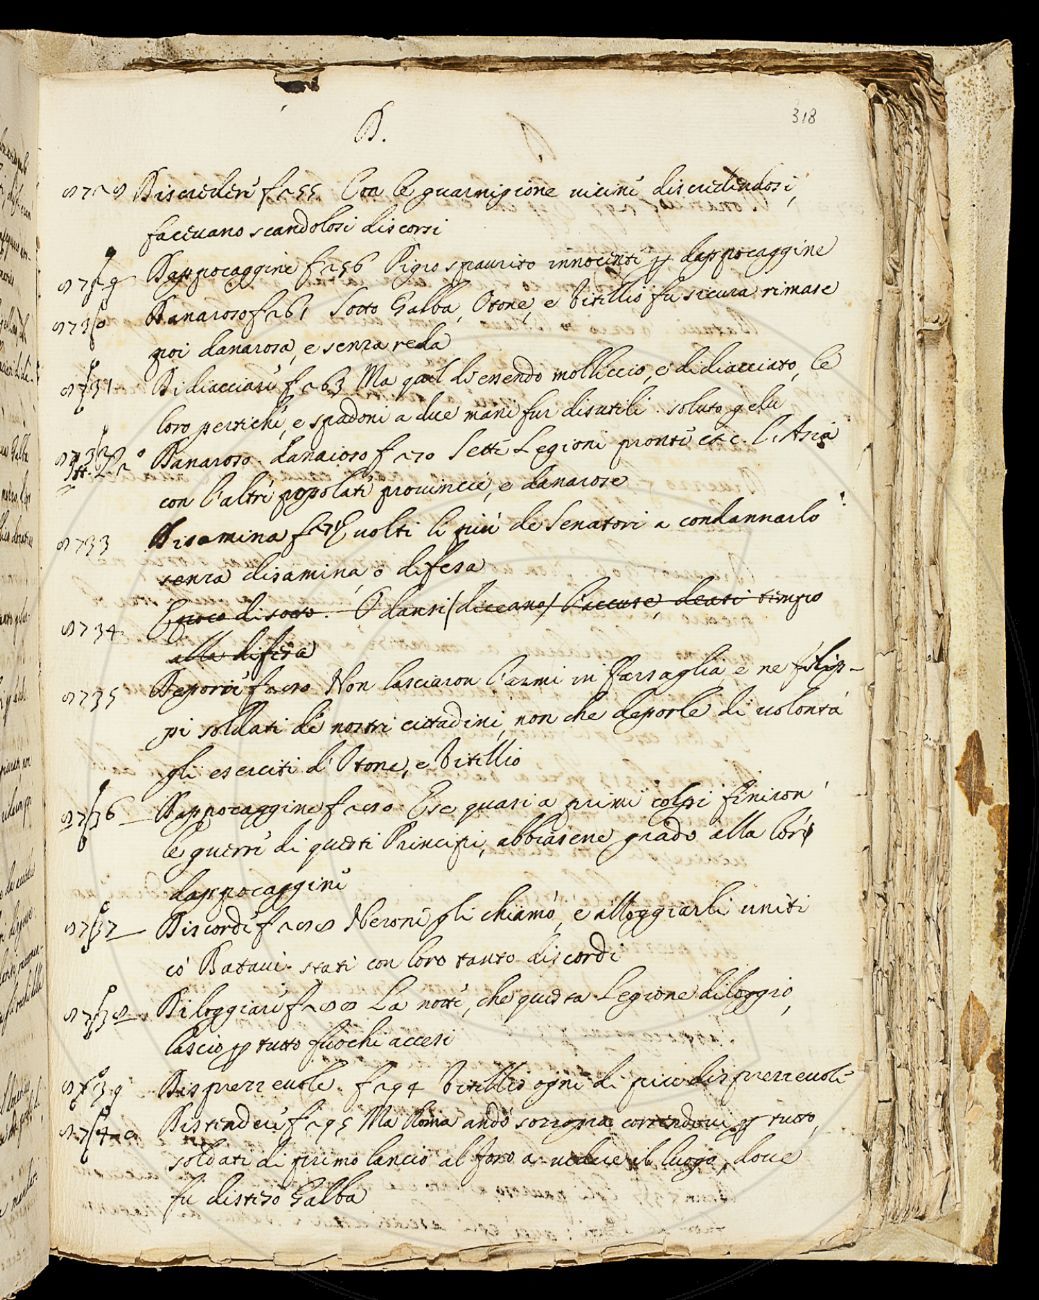 318
D.
8728 Discredere f 255 Con le guarnigione vicine discredendosi,
facevano scandolosi discorsi
8729 Dappocaggine f 256 Pigro spaurito innocenti p dappocaggine
8730 Danaroso f 261 Sotto Galba, Otone, e Vitellio fu sicura rimase
poi danarosa, e senza reda
8731 Didiacciare f 263 Ma quel dì essendo molliccio, e didiacciato, le
loro pertiche, e spadoni a due mani fur disutili soluto gelu
8732 Danaroso. danaioso f 270 Sette Legioni pronte etc. l'Asia
con l'altre popolate provincie, e danarose
8733 Disamina f volti li più de Senatori a condannarlo
senza disamina, o difesa
8734 disotto. O danri (diceano) l'accuse, deasi tempo
alla difesa
8735 Deporre f 280 Non lasciaron l'armi in Farsaglia e ne Filip-
pi soldati di nostri cittadini, non che deporle di volontà
gli eserciti d'Otone, e Vitellio
8736 Dappocaggine f 280 E se quasi a primi colpi finiron
le guerre di questi Principi, abbiasene grado alla lor
dappocaggine
8737 Discorde f 288 Nerone gli chiamò, e alloggiarli uniti
co' Batavi stati con loro tanto discordi
8738 Diloggiare f 288 La notte, che questa Legione diloggiò,
lascio p tutto fuochi accesi
8739 Disprezzevole. f 294 Vitellio ogni dì più disprezzevole
8740 Distendere f 295 Ma Roma andò sozzopra correndovi p tutto,
soldati di primo lancio al foro a vedere il luogo, dove
fu disteso Galba